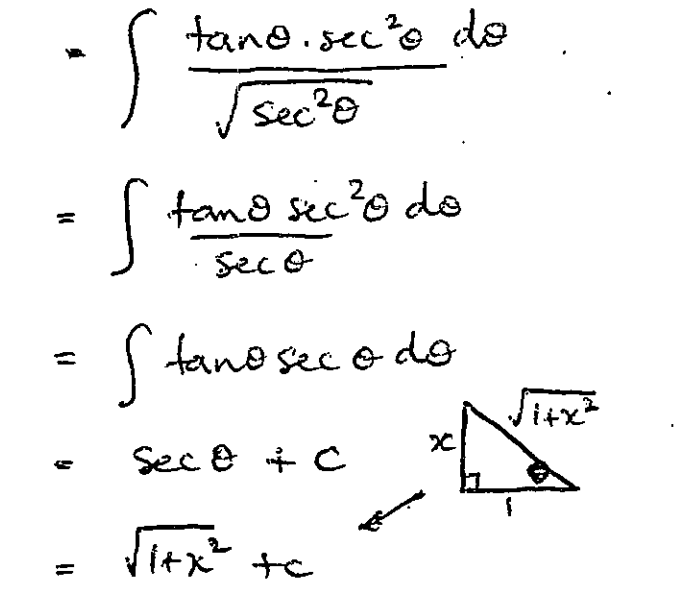 = ∫ tanθ . sec²θ dθ / √sec²θ
= ∫ tanθ sec²θ dθ / secθ
= ∫ tanθ secθ dθ
= secθ + c
x √1+x² θ 1
= √1+x² + c